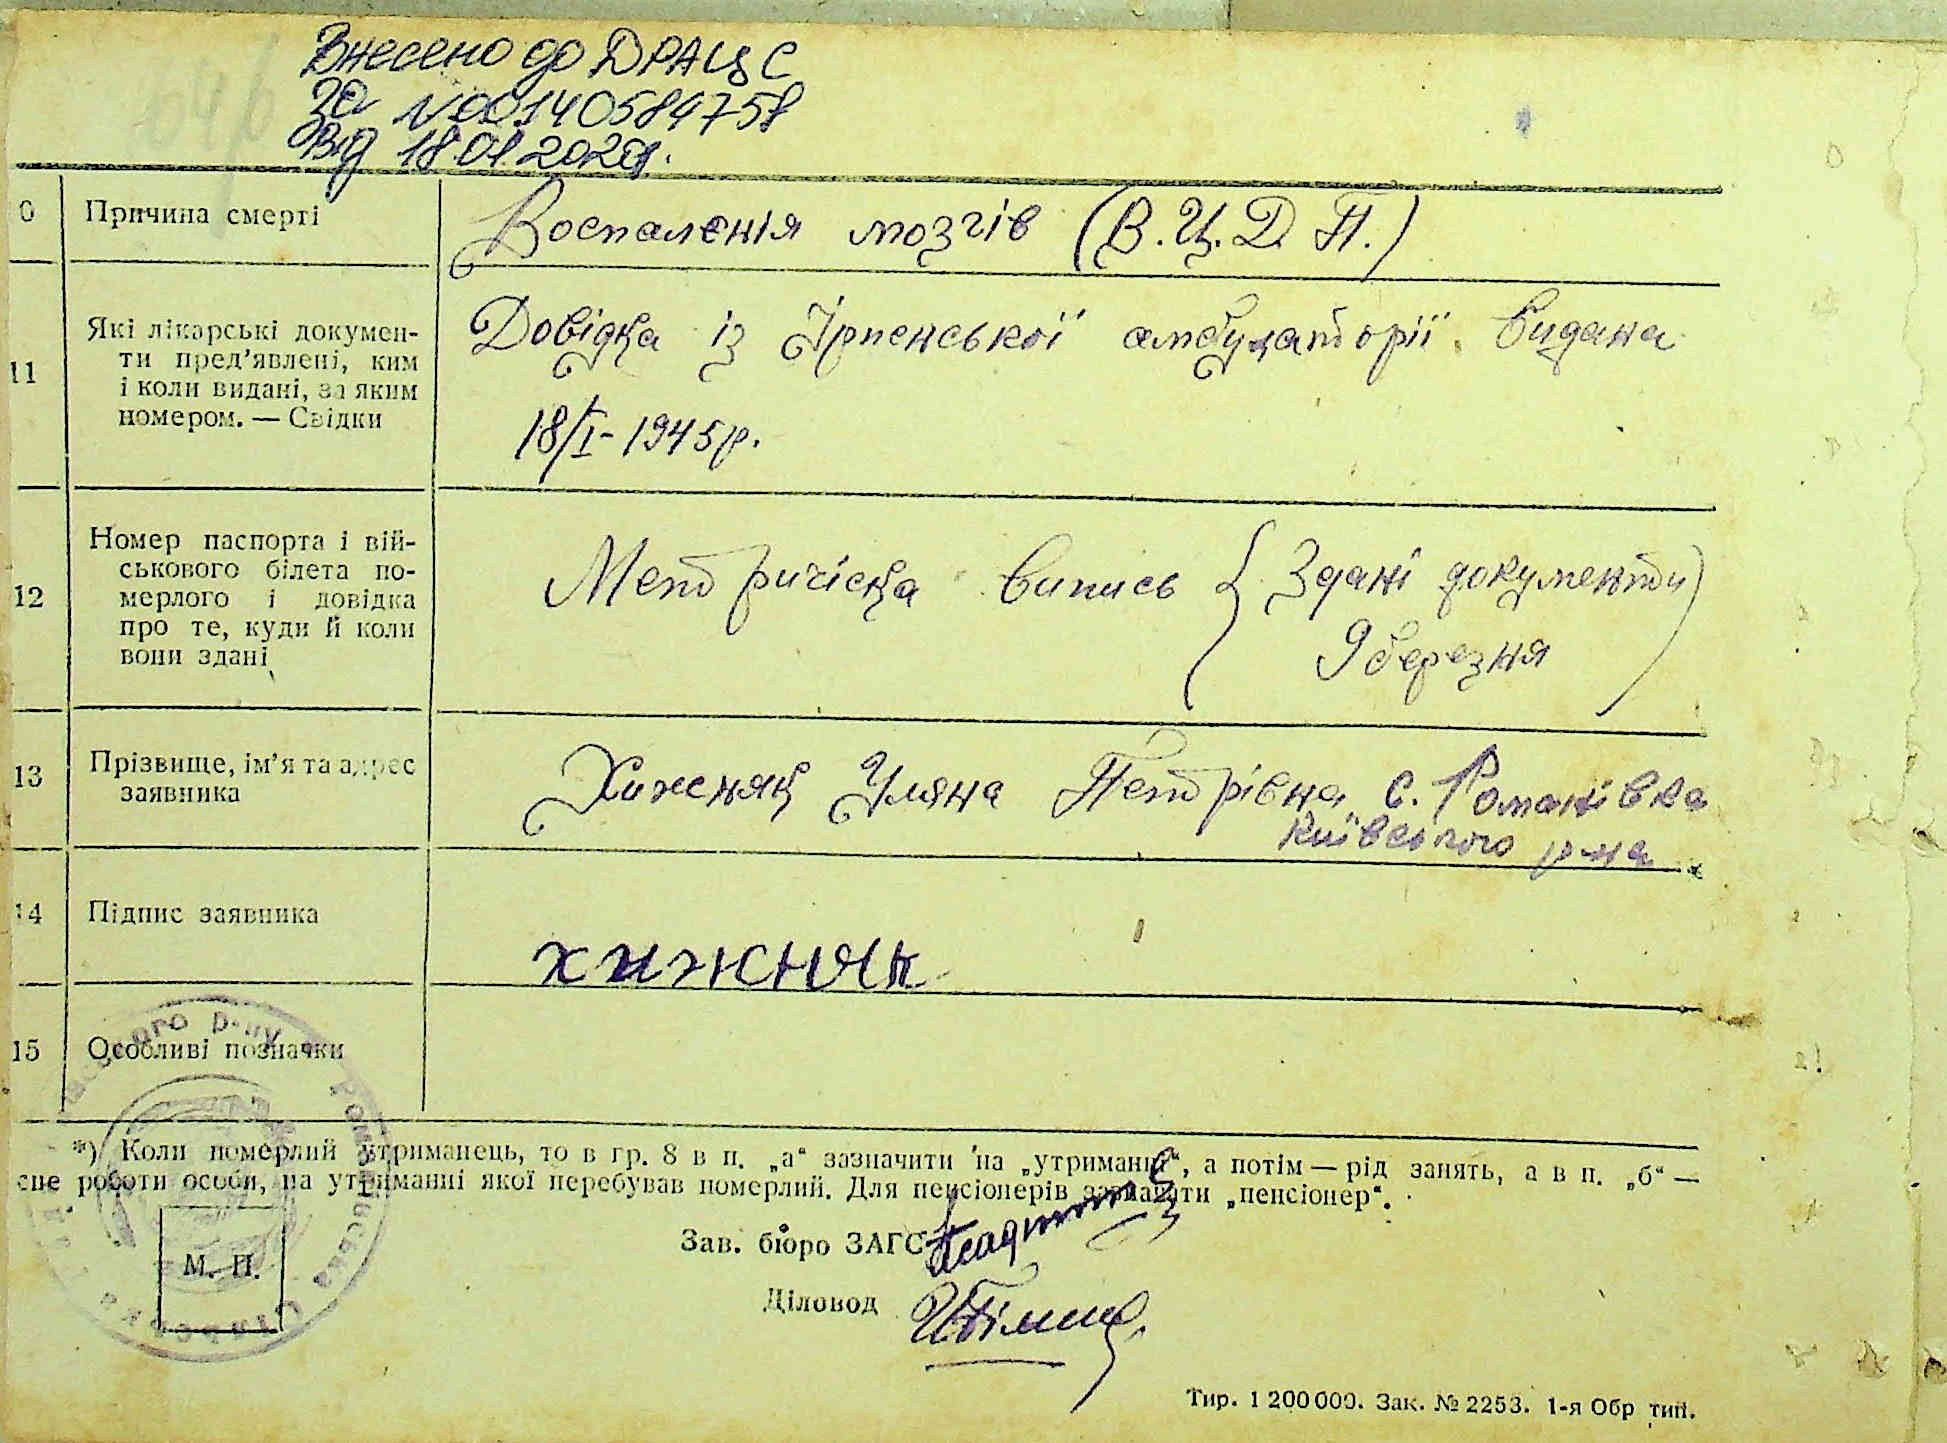 Внесено до ДРАЦС
за №00140584758
Від 18.01.2024.
0 Причина смерті Воспаленія мозгів (В.Ц.Д.П.)
11 Які лікарські докумен-
ти пред’явлені, ким
і коли видані, за яким
номером. — Свідки
Довідка із Ірпенської амбулаторії видана
18/I-1945р.
12 Номер паспорта і вій-
ськового білета по-
мерлого і довідка
про те, куди й коли
вони здані
Метричіска випись (Здані документи
9 березня)
13 Прізвище, ім’я та адрес
заявника
Хижняк Уляна Петрівна с. Романівка
Київського р-на
14 Підпис заявника
хижняк
15 Особливі позначки
*) Коли померлий утриманець, то в гр. 8 в п. „а“ зазначити на „утриманні“, а потім — рід занять, а в п. „б“ —
сце роботи особи, на утриманні якої перебував померлий. Для пенсіонерів зазначати „пенсіонер“.
М. П.
Зав. бюро ЗАГС
Діловод
Тир. 1 200 000. Зак. № 2253. 1-я Обр тип.